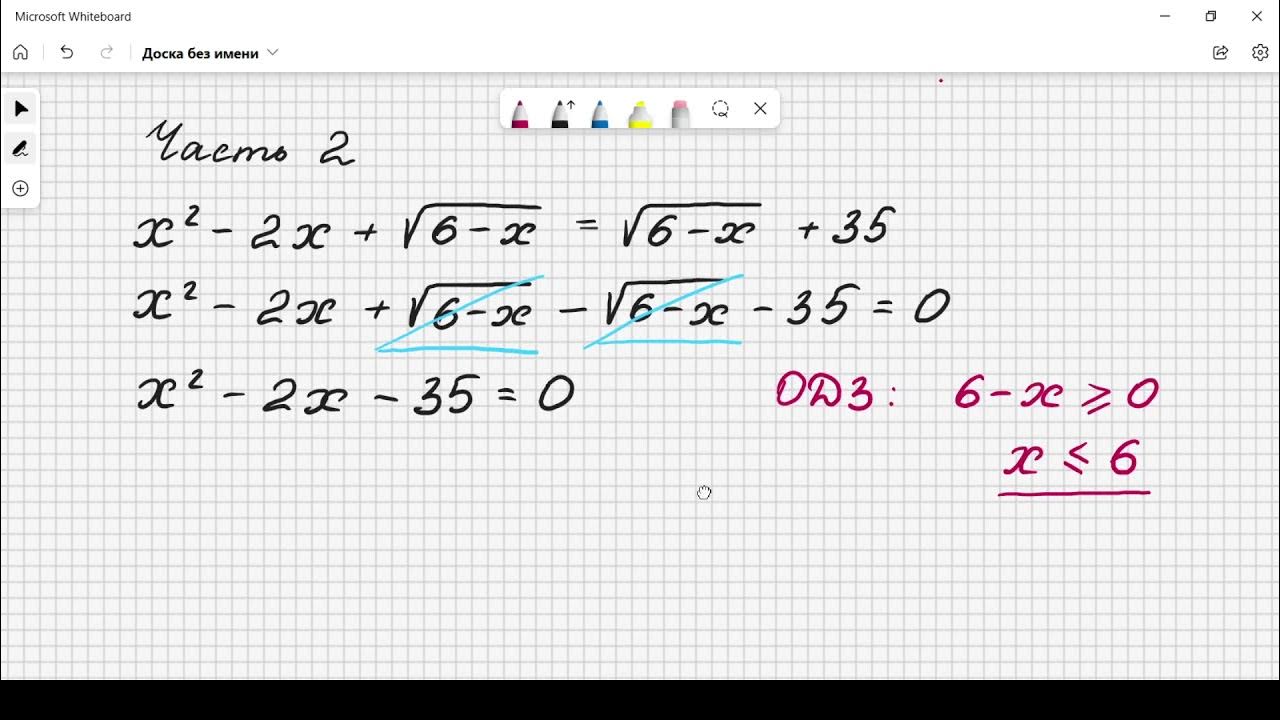 Microsoft Whiteboard
Доска без имени
Часть 2
x² - 2x + √(6-x) = √(6-x) + 35
x² - 2x + √(6-x) - √(6-x) - 35 = 0
x² - 2x - 35 = 0
ОДЗ: 6-x ⩾ 0
x ⩽ 6